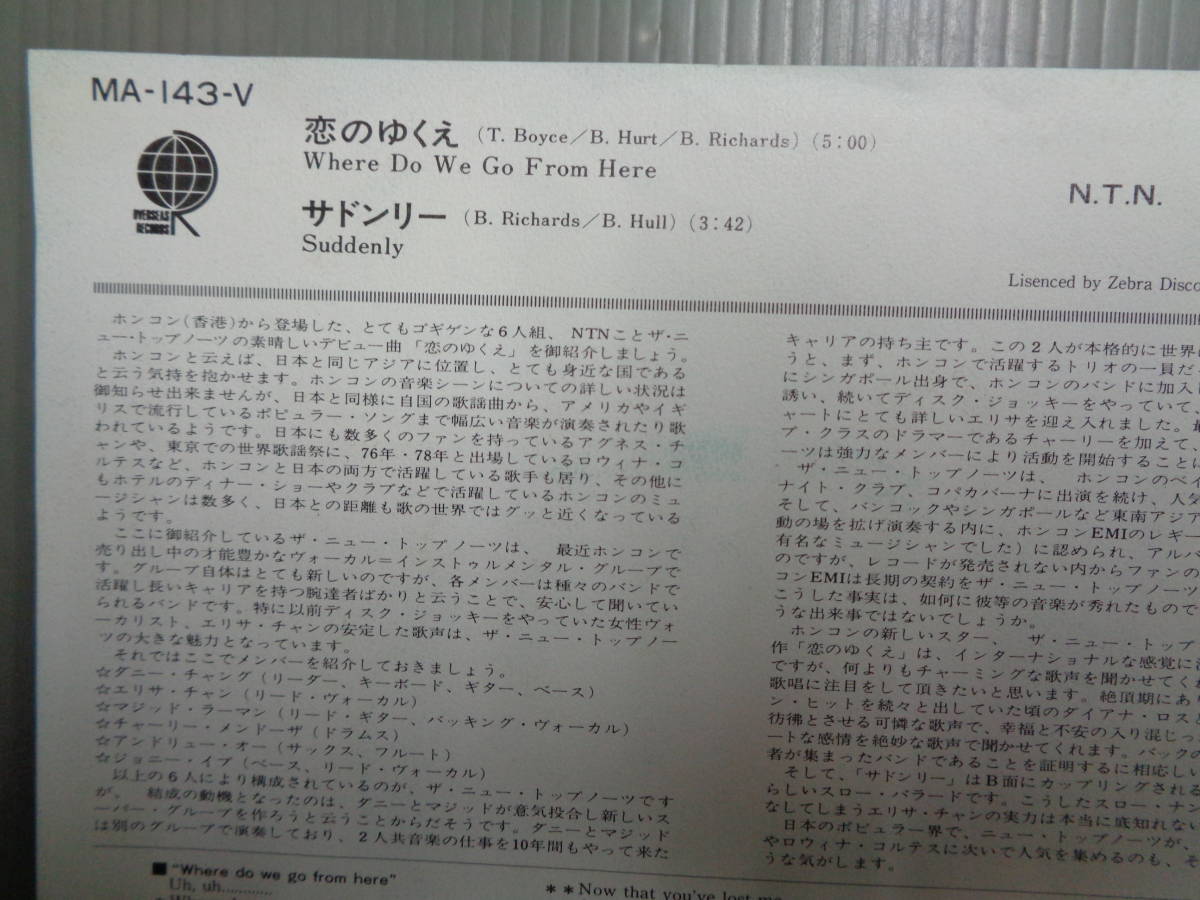 MA-143-V
OVERSEAS
RECORDS
恋のゆくえ (T. Boyce/B. Hurt/B. Richards) (5:00)
Where Do We Go From Here
サドンリー (B. Richards/B. Hull) (3:42)
Suddenly
N.T.N.
Lisenced by Zebra Disco
ホンコン(香港)から登場した、とてもゴギゲンな6人組、NTNことザ・ニ
ュー・トップノーツの素晴しいデビュー曲「恋のゆくえ」を御紹介しましょう。
ホンコンと云えば、日本と同じアジアに位置し、とても身近な国である
と云う気持を抱かせます。ホンコンの音楽シーンについての詳しい状況は
御知らせ出来ませんが、日本と同様に自国の歌謡曲から、アメリカやイギ
リスで流行しているポピュラー・ソングまで幅広い音楽が演奏されたり歌
われているようです。日本にも数多くのファンを持っているアグネス・チ
ャンや、東京での世界歌謡祭に、76年・78年と出場しているロウィナ・コ
ルテスなど、ホンコンと日本の両方で活躍している歌手も居り、その他に
もホテルのディナー・ショーやクラブなどで活躍しているホンコンのミュ
ージシャンは数多く、日本との距離も歌の世界ではグッと近くなっている
ようです。
ここに御紹介しているザ・ニュー・トップノーツは、最近ホンコンで
売り出し中の才能豊かなヴォーカル=インストゥルメンタル・グループで
す。グループ自体はとても新しいのですが、各メンバーは種々のバンドで
活躍し長いキャリアを持つ腕達者ばかりと云うことで、安心して聞いてい
られるバンドです。特に以前ディスク・ジョッキーをやっていた女性ヴォ
ーカリスト、エリサ・チャンの安定した歌声は、ザ・ニュー・トップノー
ツの大きな魅力となっています。
それではここでメンバーを紹介しておきましょう。
☆ダニー・チャング(リーダー、キーボード、ギター、ベース)
☆エリサ・チャン(リード・ヴォーカル)
☆マジッド・ラーマン(リード・ギター、バッキング・ヴォーカル)
☆チャーリー・メンドーザ(ドラムス)
☆アンドリュー・オー(サックス、フルート)
☆ジョニー・イプ(ベース、リード・ヴォーカル)
以上の6人により構成されているのが、ザ・ニュー・トップノーツです
が、結成の動機となったのは、ダニーとマジッドが意気投合し新しいス
ーパー・グループを作ろうと云うことからだそうです。ダニーとマジッド
は別のグループで演奏しており、2人共音楽の仕事を10年間もやって来た
キャリアの持ち主です。この2人が本格的に世界に
うと、まず、ホンコンで活躍するトリオの一員だ
にシンガポール出身で、ホンコンのバンドに加入
誘い、続いてディスク・ジョッキーをやっていて、
ャートにとても詳しいエリサを迎え入れました。最
プ・クラスのドラマーであるチャーリーを加えて、
ーツは強力なメンバーにより活動を開始することに
ザ・ニュー・トップノーツは、ホンコンのベイ
ナイト・クラブ、コパカバーナに出演を続け、人気
そして、バンコックやシンガポールなど東南アジア
動の場を拡げ演奏する内に、ホンコンEMIのレギー
有名なミュージシャンでした)に認められ、アルバ
のですが、レコードが発売されない内からファンの
コンEMIは長期の契約をザ・ニュー・トップノーツ
こうした事実は、如何に彼等の音楽が秀れたもので
うな出来事ではないでしょうか。
ホンコンの新しいスター、ザ・ニュー・トップ
作「恋のゆくえ」は、インターナショナルな感覚に
ですが、何よりもチャーミングな歌声を聞かせてくれ
歌唱に注目をして頂きたいと思います。絶頂期にあ
ン・ヒットを続々と出していた頃のダイアナ・ロス
彷彿とさせる可憐な歌声で、幸福と不安の入り混じっ
ートな感情を絶妙な歌声で聞かせてくれます。バックの
者が集まったバンドであることを証明するに相応しい
そして、「サドンリー」はB面にカップリングされる
らしいスロー・バラードです。こうしたスロー・ナン
なしてしまうエリサ・チャンの実力は本当に底知れない
日本のポピュラー界で、ニュー・トップノーツが、
やロウィナ・コルテスに次いで人気を集めるのも、そ
うな気がします。
■ "Where do we go from here"
Uh, uh............
**Now that you've lost me